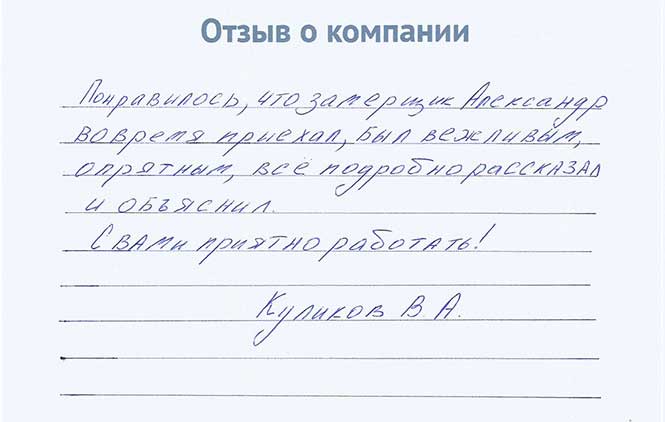 Отзыв о компании
Понравилось, что замерщик Александр
вовремя приехал, был вежливым,
опрятным, всё подробно рассказал
и объяснил.
С вами приятно работать!
Куликов В.А.